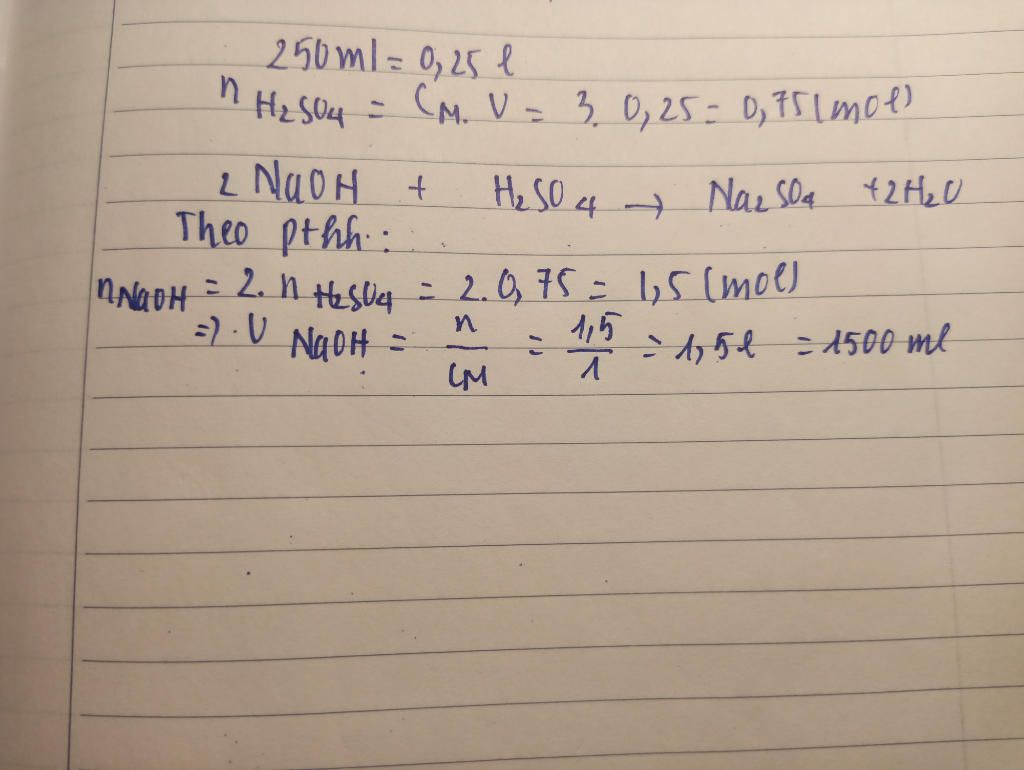 250ml = 0,25 l
n H₂SO₄ = CM. V = 3. 0,25 = 0,75 (mol)
2 NaOH + H₂SO₄ → Na₂SO₄ + 2H₂O
Theo pthh :
nNaOH = 2. n H₂SO₄ = 2. 0,75 = 1,5 (mol)
=> . V NaOH = n/CM = 1,5/1 = 1,5 l = 1500 ml